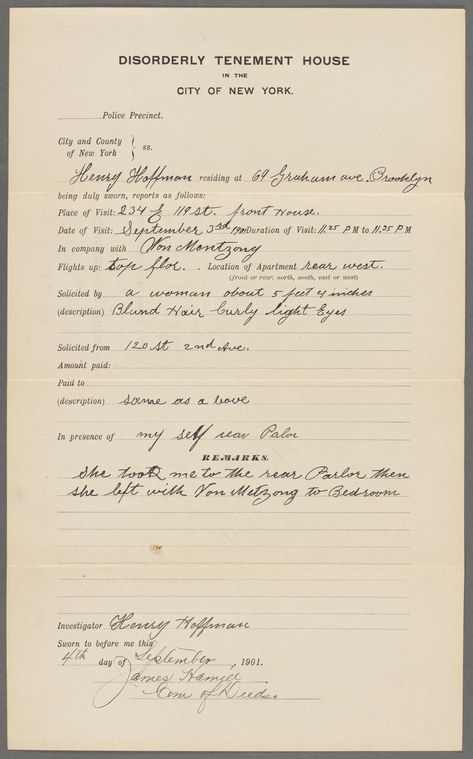 DISORDERLY TENEMENT HOUSE
IN THE
CITY OF NEW YORK.
Police Precinct.
City and County of New York } ss.
Henry Hoffman residing at 69 Graham ave. Brooklyn
being duly sworn, reports as follows:
Place of Visit: 234 E 119 st. front House.
Date of Visit: September 3rd 1901 Duration of Visit: 11.25 P M to 11.35 P M
In company with Von Montzong
Flights up: top flor. Location of Apartment rear west.
(front or rear: north, south, east or west)
Solicited by a woman about 5 feet 4 inches
(description) Blund Hair Curly light Eyes
Solicited from 120 st 2nd Ave.
Amount paid:
Paid to
(description) same as a bove
In presence of my self rear Palor
REMARKS.
she took me to the rear Parlor then
she left with Von Metzong to Bedroom
Investigator Henry Hoffman
Sworn to before me this
4th day of September, 1901.
James Hamill
Com of Deeds.